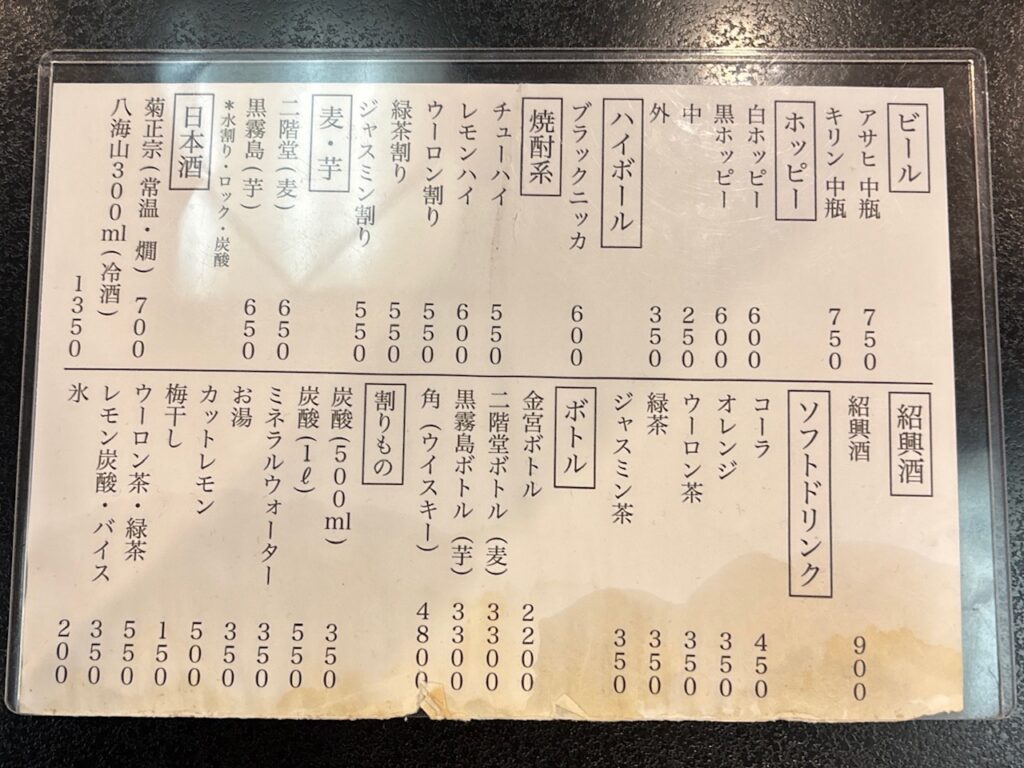 ビール
アサヒ 中瓶 750
キリン 中瓶 750
ホッピー
白ホッピー 600
黒ホッピー 600
中 250
外 350
ハイボール
ブラックニッカ 600
焼酎系
チューハイ 550
レモンハイ 600
ウーロン割り 550
緑茶割り 550
ジャスミン割り 550
麦・芋
二階堂(麦) 650
黒霧島(芋) 650
*水割り・ロック・炭酸
日本酒
菊正宗(常温・燗) 700
八海山300ml(冷酒) 1350
紹興酒
紹興酒 900
ソフトドリンク
コーラ 450
オレンジ 350
ウーロン茶 350
緑茶 350
ジャスミン茶 350
ボトル
金宮ボトル 2200
二階堂ボトル(麦) 3300
黒霧島ボトル(芋) 3300
角(ウイスキー) 4800
割りもの
炭酸(500ml) 350
炭酸(1ℓ) 550
ミネラルウォーター 350
お湯 350
カットレモン 500
梅干し 150
ウーロン茶・緑茶 550
レモン炭酸・バイス 350
氷 200